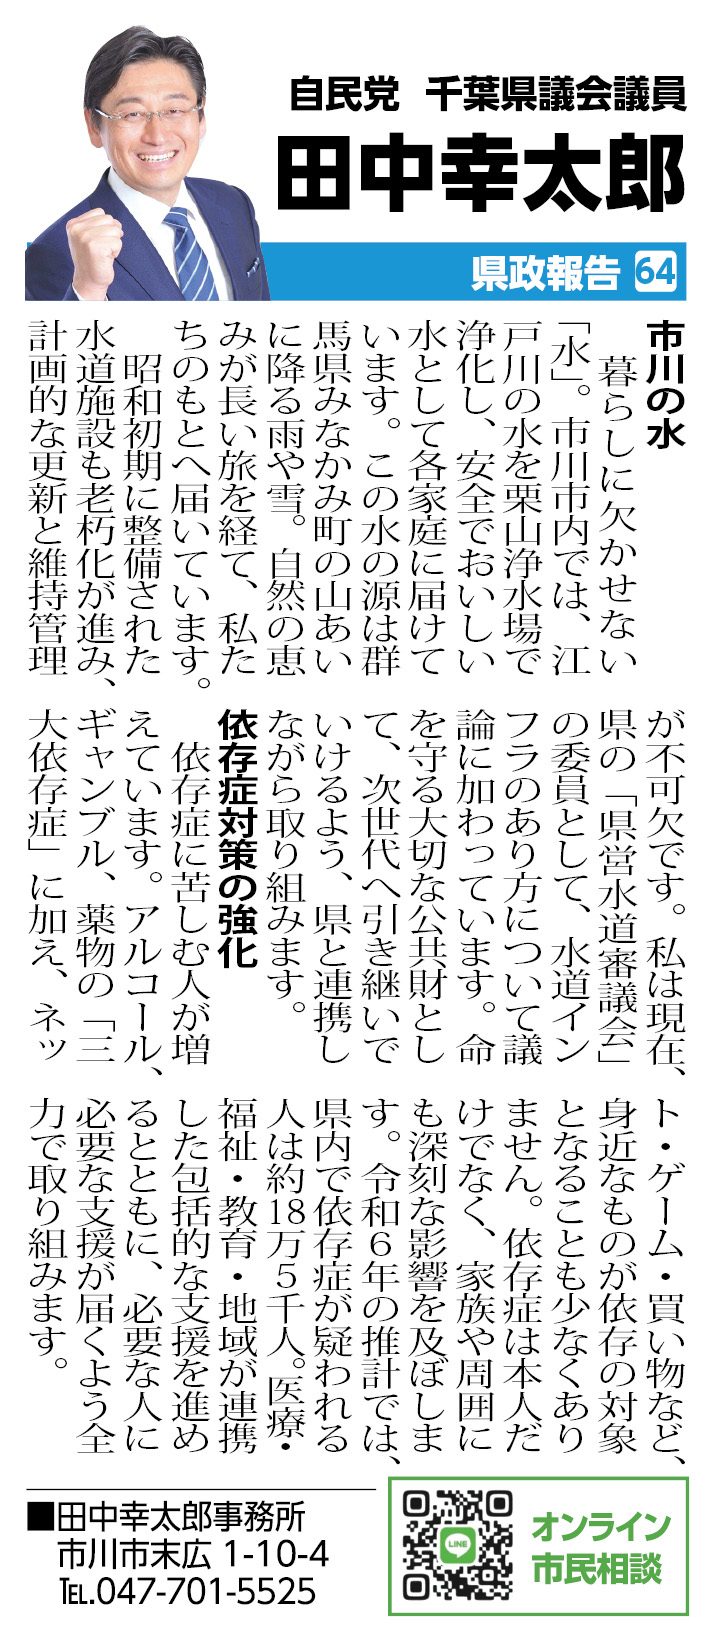 自民党 千葉県議会議員
田中幸太郎
県政報告 64
市川の水
　暮らしに欠かせない
「水」。市川市内では、江
戸川の水を栗山浄水場で
浄化し、安全でおいしい
水として各家庭に届けて
います。この水の源は群
馬県みなかみ町の山あい
に降る雨や雪。自然の恵
みが長い旅を経て、私た
ちのもとへ届いています。
　昭和初期に整備された
水道施設も老朽化が進み、
計画的な更新と維持管理
が不可欠です。私は現在、
県の「県営水道審議会」
の委員として、水道イン
フラのあり方について議
論に加わっています。命
を守る大切な公共財とし
て、次世代へ引き継いで
いけるよう、県と連携し
ながら取り組みます。
依存症対策の強化
　依存症に苦しむ人が増
えています。アルコール、
ギャンブル、薬物の「三
大依存症」に加え、ネッ
ト・ゲーム・買い物など、
身近なものが依存の対象
となることも少なくあり
ません。依存症は本人だ
けでなく、家族や周囲に
も深刻な影響を及ぼしま
す。令和６年の推計では、
県内で依存症が疑われる
人は約18万５千人。医療・
福祉・教育・地域が連携
した包括的な支援を進め
るとともに、必要な人に
必要な支援が届くよう全
力で取り組みます。
■田中幸太郎事務所
市川市末広 1-10-4
℡.047-701-5525
LINE
オンライン
市民相談